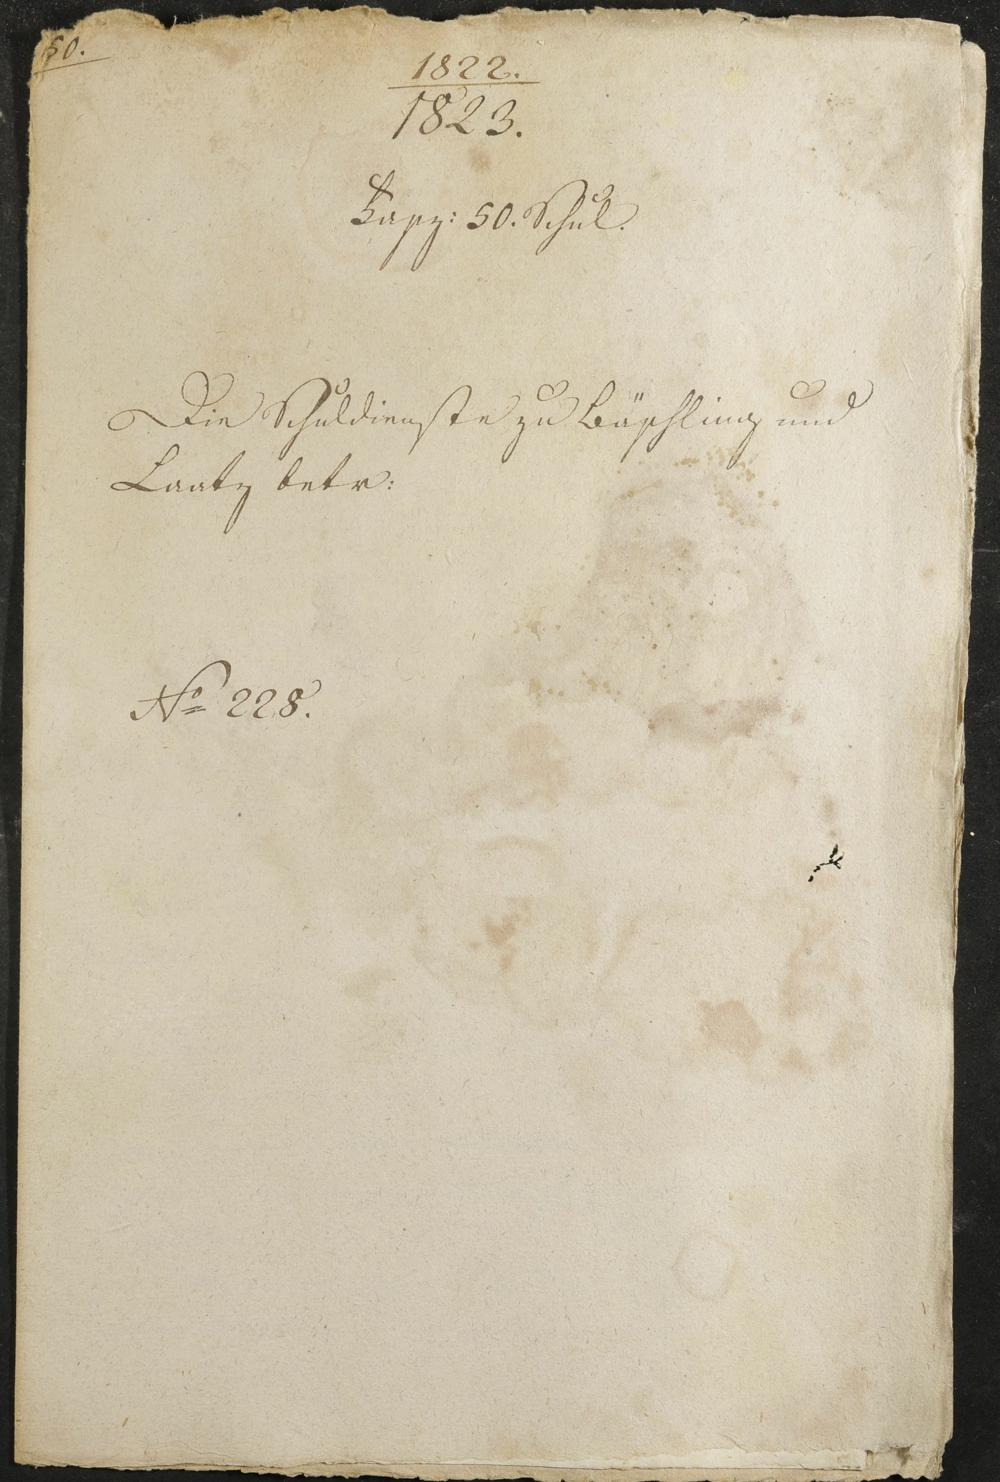 50.
1822.
1823.
Kapz: 50. Schul.
Die Schuldienste zu Bäschling und
Laatz betr:
No 228.